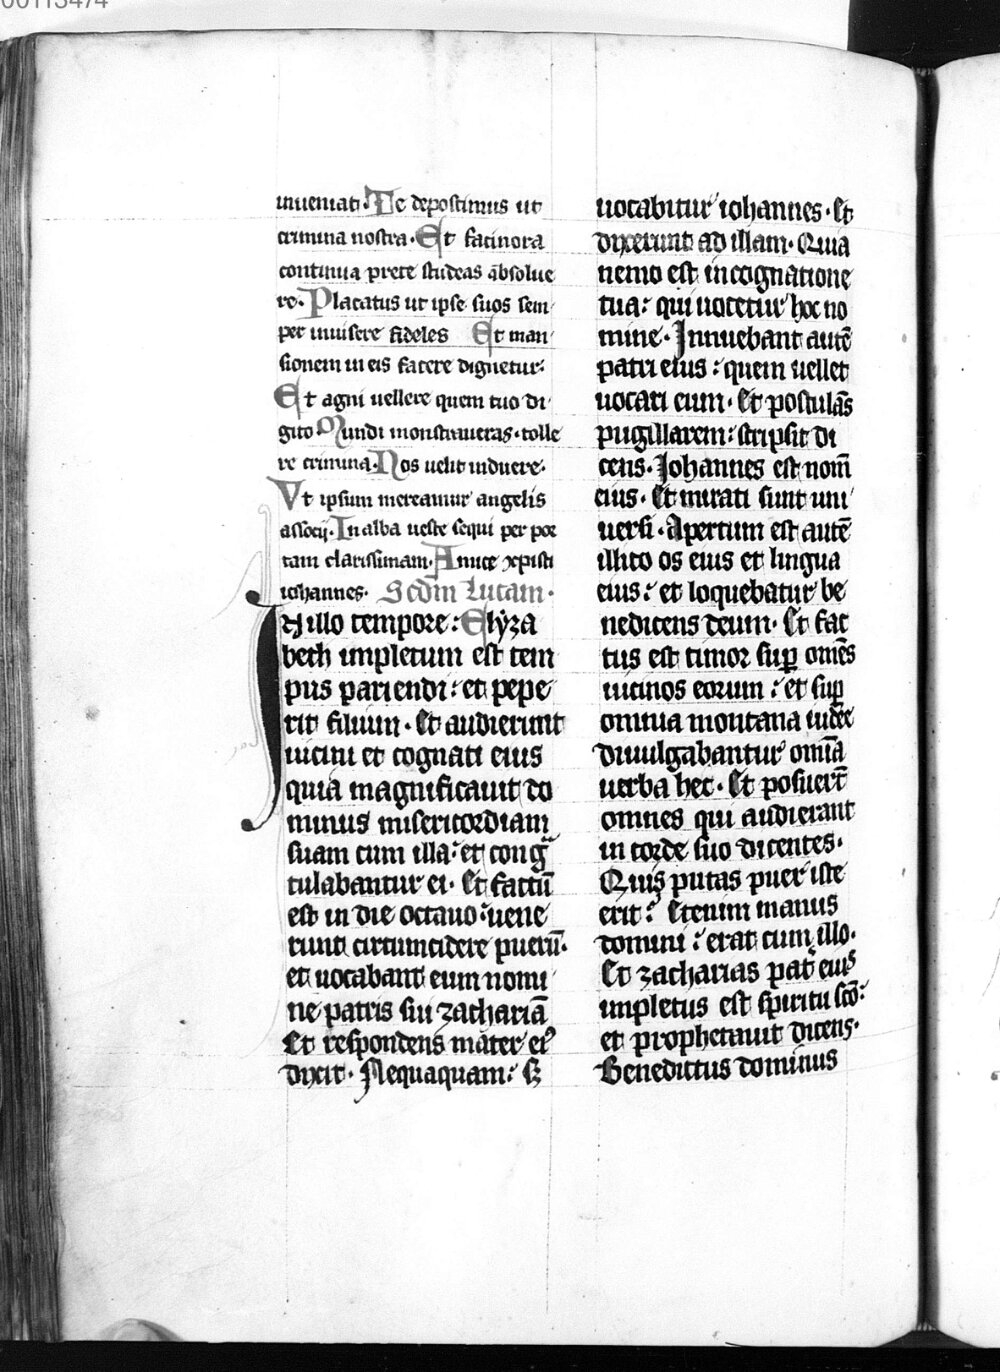 inueniat· Te deposcimus ut
crimina nostra· Et facinora
continua prece studeas absolue
re· Placatus ut ipse suos sem
per inuisere fideles Et man
sionem in eis facere dignetur·
Et agni uellere quem tuo di
gito· Mundi monstraueras· tolle
re crimina· Nos uelit induere·
Vt ipsum mereamur angelis
associj· In alba ueste sequi per por
tam clarissimam· Amice xpisti
iohannes· Scdm Lucam·
In illo tempore: Elyza
beth impletum est tem
pus pariendi: et pepe
rit filium· Et audierunt
uicini et cognati eius
quia magnificauit do
minus misericordiam
suam cum illa: et congͣ
tulabantur ei· Et factū
est in die octauo: uene
runt circumcidere puerū·
et uocabant eum nomi
ne patris sui zachariā
Et respondens mater eiꝰ
dixit· Nequaquam: sꝫ
uocabitur iohannes· Et
dixerunt ad illam· Quia
nemo est in cognatione
tua: qui uocetur hoc no
mine· Innuebant autē
patri eius: quem uellet
uocari eum· Et postulās
pugillarem: scripsit di
cens· Iohannes est nom̄
eius· Et mirati sunt uni
uersi· Apertum est autē
illico os eius et lingua
eius: et loquebatur be
nedicens deum· Et fac
tus est timor suꝑ omēs
uicinos eorum: et suꝑ
omnia montana iudee
diuulgabantur omīa
uerba hec· Et posuerūt
omnes qui audierant
in corde suo dicentes·
Quis putas puer iste
erit: Etenim manus
domini: erat cum illo·
Et zacharias pat̄ eius
impletus est spiritu scō:
et prophetauit dicens·
Benedictus dominus